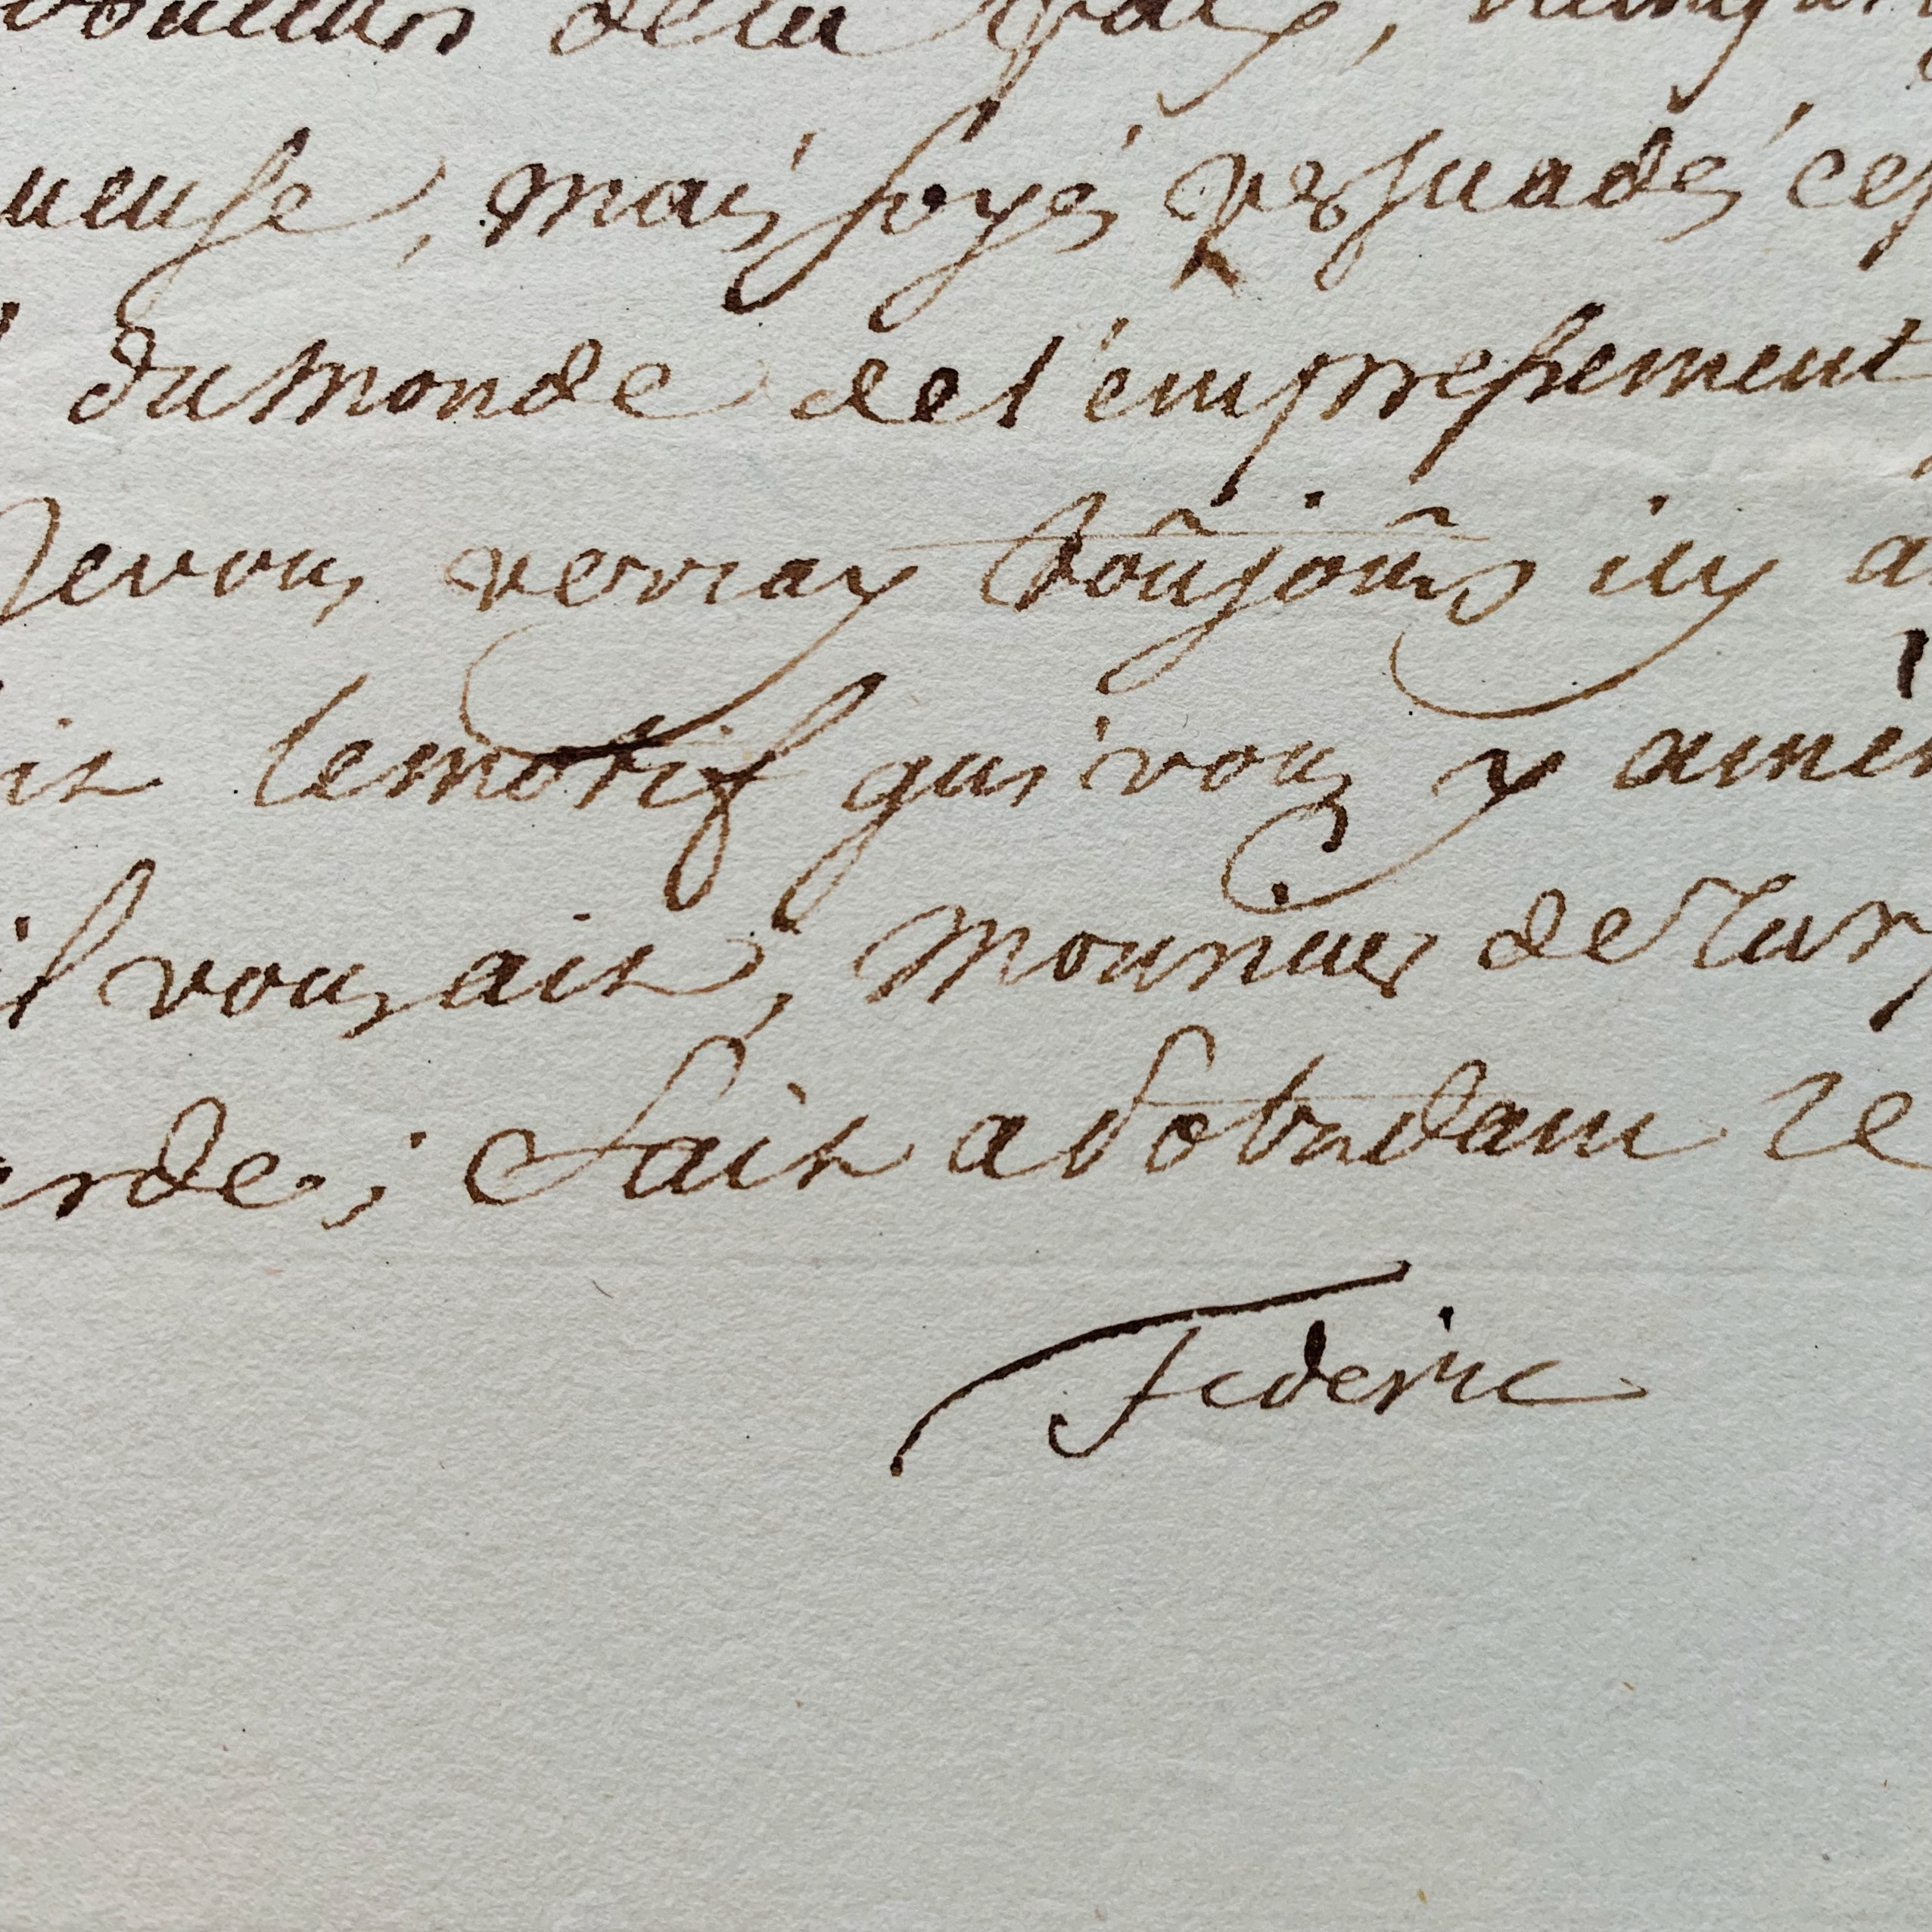 douceurs dela paix,
ueuse, mais soyés persuadés ces
du monde de l'empressement
Jevous verray toûjoûrs icy a
it lemotif qui vous y amèn
il vous ait, Monsieur de Tur
arde; Fait a Potzdam le
Federic